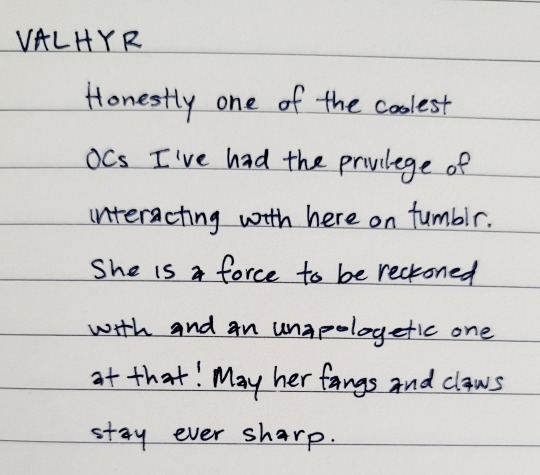 VALHYR
Honestly one of the coolest
OCs I've had the privilege of
interacting with here on tumblr.
She is a force to be reckoned
with and an unapologetic one
at that! May her fangs and claws
stay ever sharp.